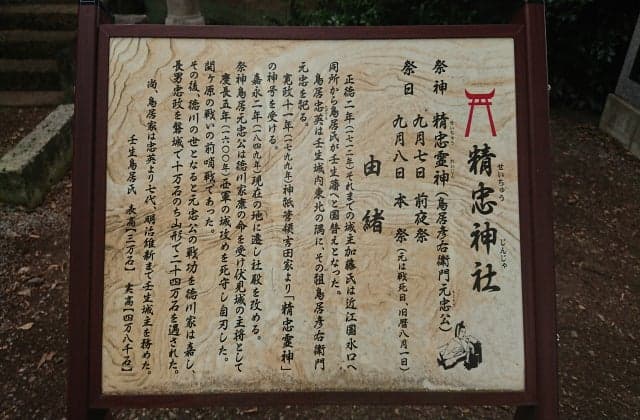 精忠神社
せいちゅう じんじゃ
祭神 精忠霊神(鳥居彦右衛門元忠公)
祭日 九月七日 前夜祭
九月八日 本祭(元は戦死日、旧暦八月一日)
由緒
正徳二年(一七一二年)それまでの城主加藤氏は近江国水口へ
同所から鳥居氏が壬生藩へと国替えとなった。
鳥居忠英は壬生城内東北の隅に、その祖鳥居彦右衛門
元忠を祀る。
寛政十一年(一七九九年)神祇管領吉田家より「精忠霊神」
の神号を受ける。
嘉永二年(一八四九年)現在の地に遷し社殿を改める。
祭神鳥居元忠公は徳川家康の命を受け伏見城の主将として
慶長五年(一六〇〇年)西軍の城攻めを死守し自刃した。
関ヶ原の戦いの前哨戦であった。
その後、徳川の世となると元忠公の戦功を徳川家は嘉し、
長男忠政を磐城で十万石のち山形で二十四万石を遇された。
尚、鳥居家は忠英より七代、明治維新まで壬生城主を務めた。
壬生鳥居氏 表高【三万石】 実高【四万八千石】